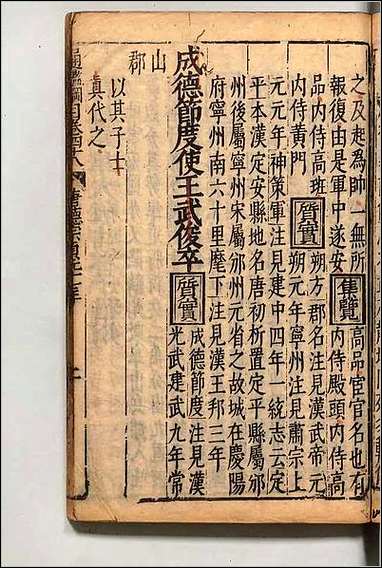 之及起為帥一無所
報復由是軍中遂安
集覽
高品宦官名也有
内侍殿頭内侍高
品内侍高班
内侍黄門
質實
朔方郡名注見漢武帝元
朔元年寧州注見肅宗上
元元年神策軍注見建中四年一統志云定
平本漢定安縣地名唐初析置定平縣屬邠
州後屬寧州宋屬邠州元省之故城在慶陽
府寧州南六十里麾下注見漢王邦三年
成德節度使王武俊卒
質實
成德節度注見漢
光武建武九年常
山
郡
以其子士
真代之